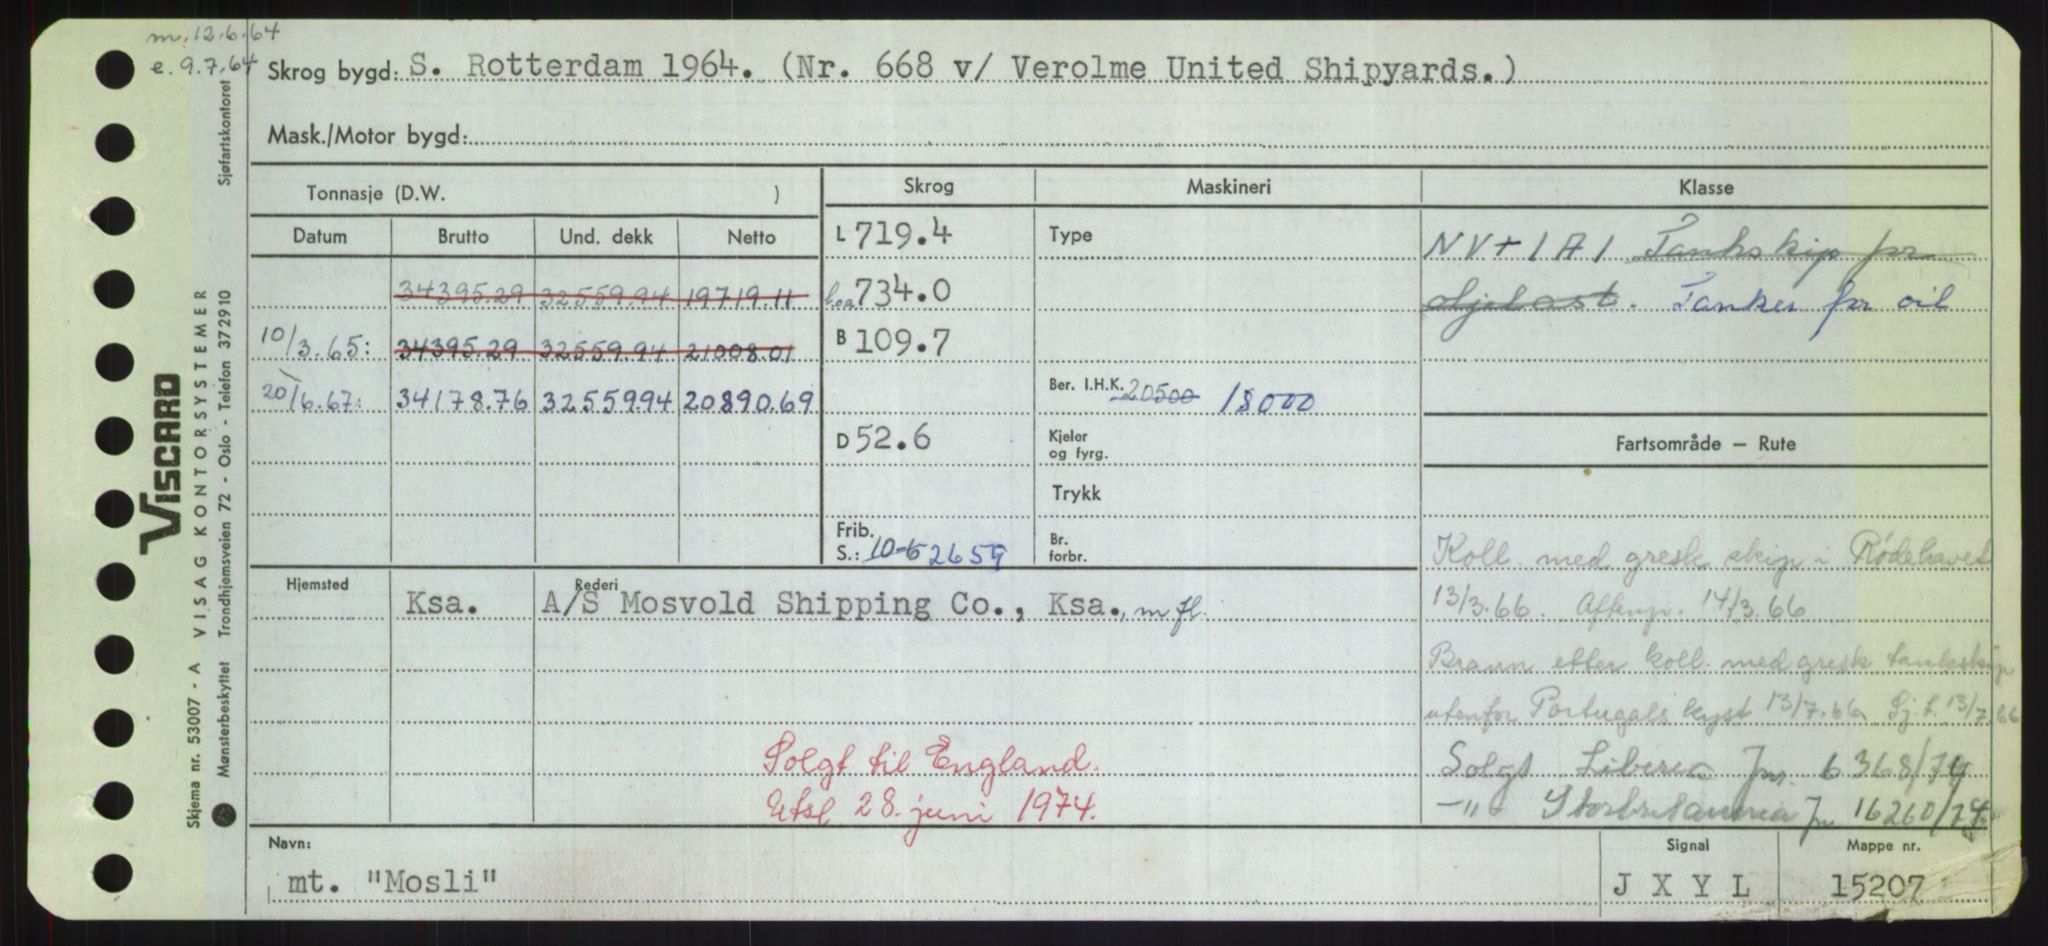 m. 12.6.64
e. 9.7.64
Skrog bygd: S. Rotterdam 1964. (Nr. 668 v/ Verolme United Shipyards.)
Mask./Motor bygd:
Tonnasje (D.W. )
Skrog
Maskineri
Klasse
Datum Brutto Und. dekk Netto
L 719.4
Type
NV+1A1 Tankskip for
34395.29 32559.94 19719.11
Loa 734.0
oljelast. Tanker for oil
10/3.65: 34395.29 32559.94 21008.01
B 109.7
20/6.67: 34178.76 32559.94 20890.69
Ber. I.H.K. 20500 18000
D 52.6
Kjeler
og fyrg.
Fartsområde – Rute
Trykk
Frib.
S.: 10-6 2659
Br.
forbr.
Koll. med gresk skip i Rødehavet
Hjemsted
Rederi
Ksa. A/S Mosvold Shipping Co., Ksa., m fl.
13/3.66. Aftenp. 14/3.66
Brann etter koll. med gresk tankskip
utenfor Portugals kyst 13/7.66 Sj.t. 13/7.66
Solgt til England.
Solgt Liberia Jnr. 6368/74
Utsl 28. juni 1974.
-"- Storbritannia Jnr 16260/74
Navn:
Signal
Mappe nr.
mt. "Mosli"
J X Y L
15207
Skjema nr. 53007 - A VISAG KONTORSYSTEMER
VISCARD
Mønsterbeskyttet Trondhjemsveien 72 - Oslo - Telefon 372910 Sjøfartskontoret